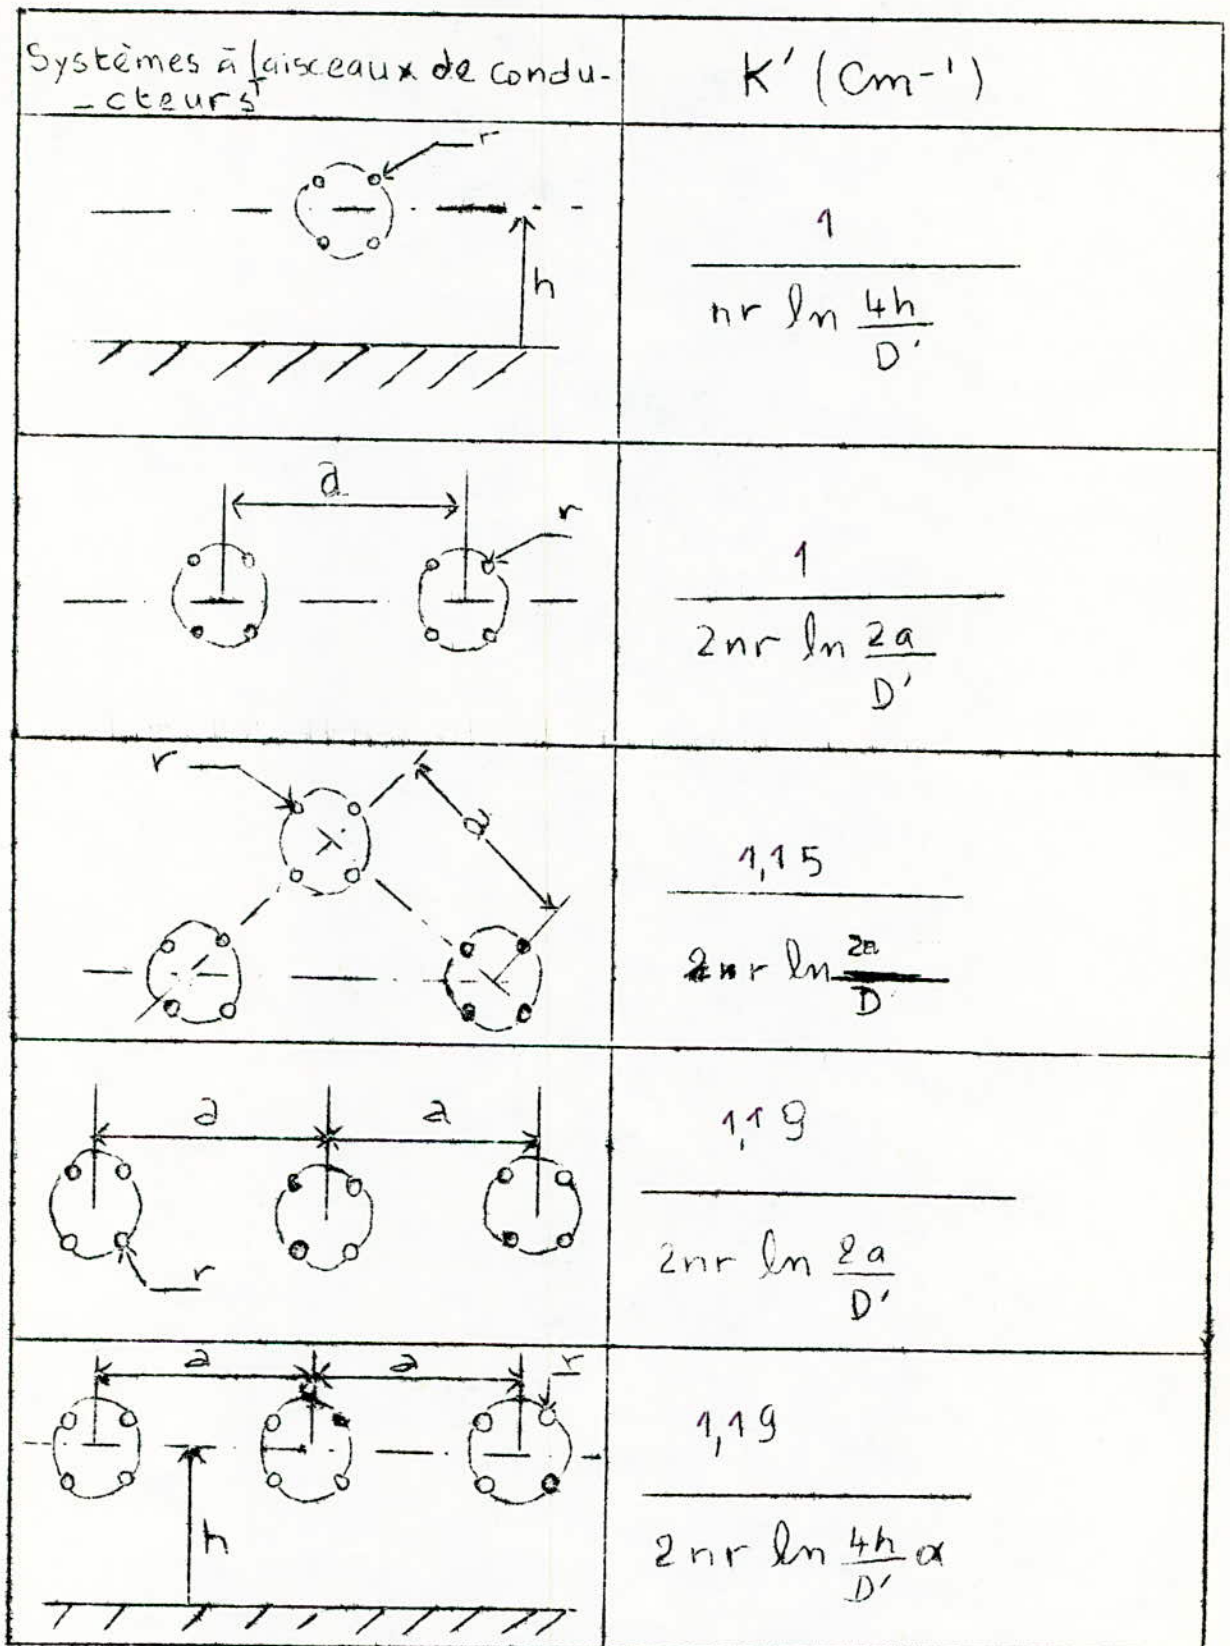 Systèmes à faisceaux de condu-
-cteurs
K' (cm-1)
r
h
1
nr ln 4h
D'
a
r
1
2nr ln 2a
D'
r
a
1,15
2nr ln 2a
D
a
a
r
1,19
2nr ln 2a
D'
a
a
r
h
1,19
2nr ln 4h α
D'